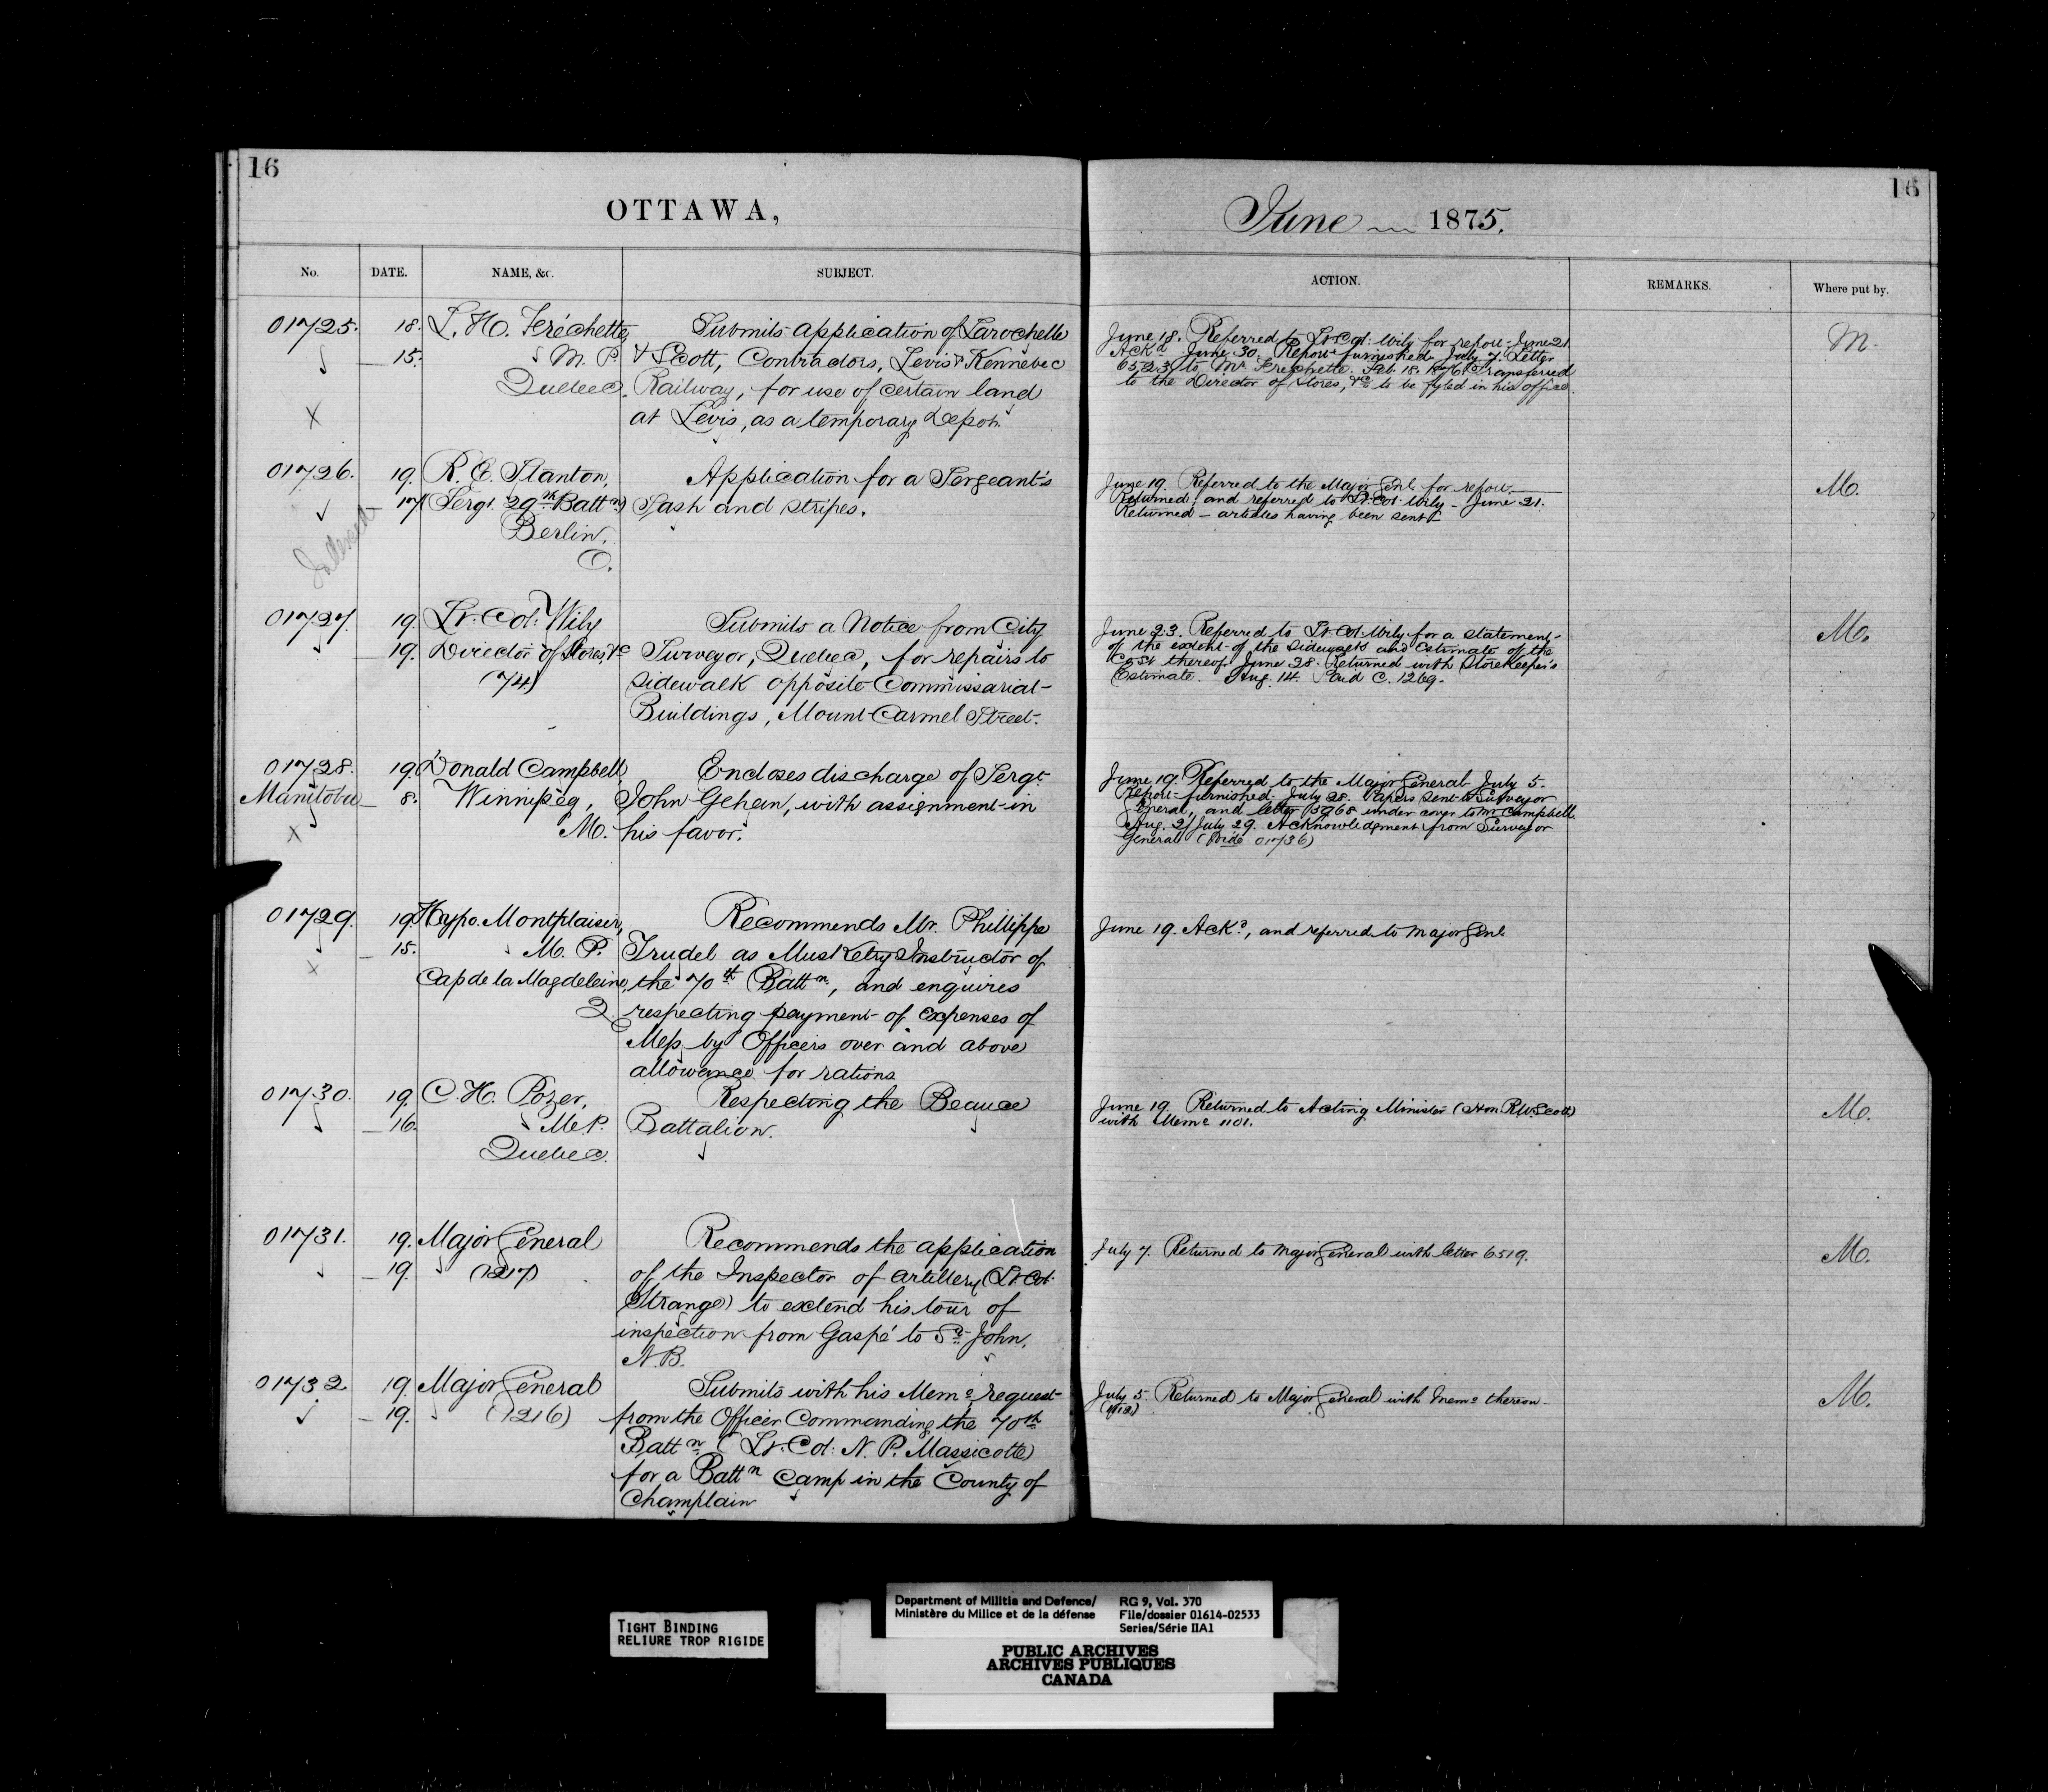 16
OTTAWA,
No.
DATE.
NAME, &c.
SUBJECT.
01725.
18.
15.
L. H. Fréchette,
M. P.
Quebec.
Submits application of Larochelle
& Scott, Contractors, Levis & Kennebec
Railway, for use of certain land
at Levis, as a temporary Depot.
X
01726.
19.
17
R. E. Stanton,
Sergt. 29th Battn
Berlin,
O.
Application for a Sergeant's
Sash and stripes.
01727.
19.
19.
Lt. Col: Wily
Director of Stores, &c
(74)
Submits a Notice from City
Surveyor, Quebec, for repairs to
sidewalk opposite Commissariat
Buildings, Mount Carmel Street.
01728.
Manitoba
X
19.
8.
Donald Campbell,
Winnipeg,
M.
Encloses discharge of Sergt
John Gehan, with assignment in
his favor.
01729.
X
19.
15.
Hypo. Montplaisir,
M. P.
Cap de la Magdeleine,
Q.
Recommends Mr. Phillippe
Trudel as Musketry Instructor of
the 70th Battn, and enquires
respecting payment of Expenses of
Mess by Officers over and above
allowance for rations.
01730.
19.
16.
C. H. Pozer,
M.P.
Quebec.
Respecting the Beauce
Battalion.
01731.
19.
19.
Major General
(1217)
Recommends the application
of the Inspector of Artillery (Lt. Col.
Strange) to extend his tour of
inspection from Gaspé to St. John,
N.B.
01732
19.
19.
Major General
(1216)
Submits with his Memo request
from the Officer Commanding the 70th
Battn (Lt. Col: N. P. Massicotte)
for a Battn Camp in the County of
Champlain
June 1875.
16
ACTION.
REMARKS.
Where put by.
June 18. Referred to Lt. Col. Wily for report. June 21.
Ackd June 30. Report furnished July 7. Letter
6523 to Mr Frechette. Feb. 18. 1876 Transferred
to the Director of Stores, &c to be fyled in his office.
M.
June 19. Referred to the Major Genl. for report.
Returned, and referred to Lt. Col. Wily - June 21.
Returned - articles having been sent
M.
June 23. Referred to Lt. Col. Wily for a statement
of the extent of the sidewalk and Estimate of the
Cost thereof. June 28. Returned with Storekeeper's
Estimate. Aug. 14. Paid C. 1269.
M.
June 19. Referred to the Major General July 5.
Report furnished. July 28. Papers sent to Surveyor
General, and letter under cover to Mr Campbell.
Aug. 2/ July 29. Acknowledgment from Surveyor
General (Vide 01736)
June 19. Ackd, and referred to Major Genl.
June 19. Returned to Acting Minister (Hon. R.W. Scott)
with Memo 1101.
M.
July 7. Returned to Major General with letter 6519.
M.
July 5. Returned to Major General with Memo thereon
M.
TIGHT BINDING
RELIURE TROP RIGIDE
Department of Militia and Defence/
Ministère du Milice et de la défense
RG 9, Vol. 370
File/dossier 01614-02533
Series/Série IIA1
PUBLIC ARCHIVES
ARCHIVES PUBLIQUES
CANADA